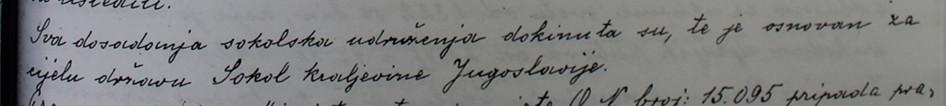 Sva dosadanja sokolska udruženja dokinuta su, te je osnovan za
cijelu državu Sokol kraljevine Jugoslavije.
O.N. broj: 15.095 pripada pra-